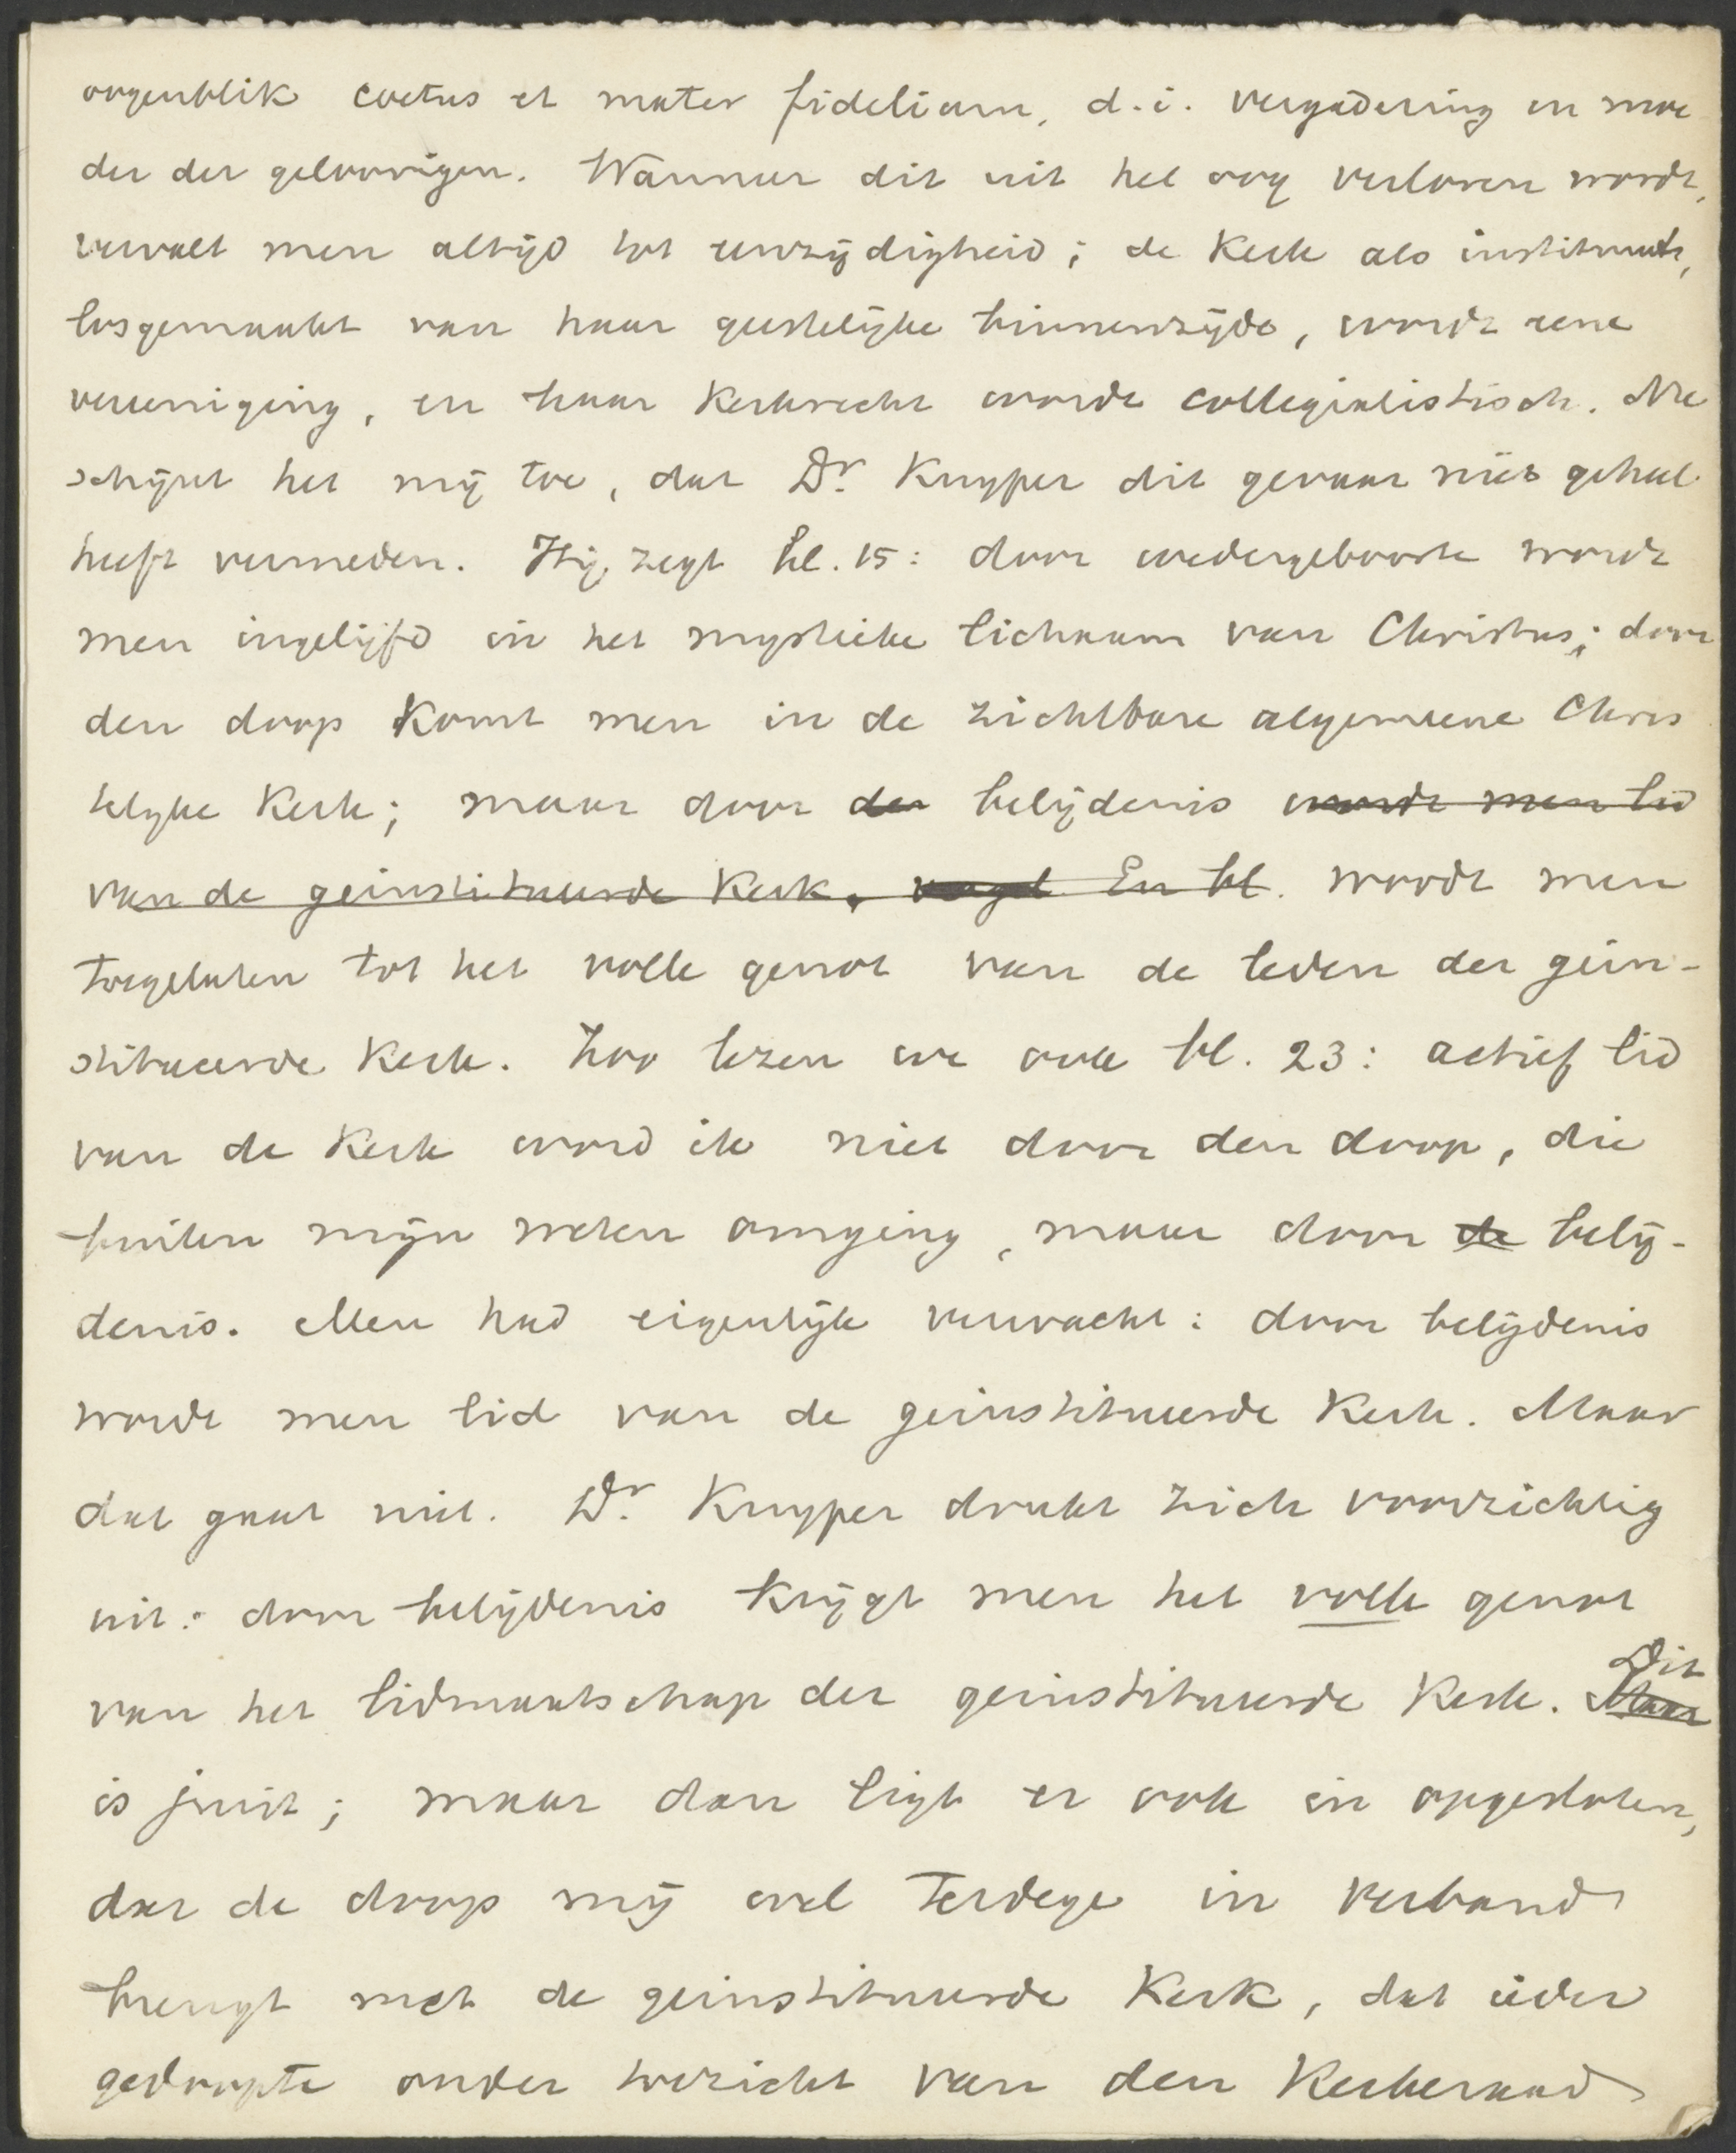 oogenblik coetus et mater fidelium, d.i. vergadering en moe
der der geloovigen. Wanneer dit uit het oog verloren wordt,
vervalt men altijd tot eenzijdigheid; de Kerk als instituut,
losgemaakt van haar geestelijke binnenzijde, wordt eene
vereeniging, en haar Kerkrecht wordt collegialistisch. Nu
schijnt het mij toe, dat Dr. Kuyper dit gevaar niet geheel
heeft vermeden. Hij zegt bl. 15: door wedergeboorte wordt
men ingelijfd in het mystieke lichaam van Christus; door
den doop komt men in de zichtbare algemeene Chris
telijke Kerk; maar door der belijdenis wordt men lid
van de geinstitueerde Kerk. En bl. wordt men
toegelaten tot het volle genot van de leden der gein-
stitueerde Kerk. Zoo lezen we ook bl. 23: actief lid
van de Kerk word ik niet door den doop, die
buiten mijn weten omging, maar door de belij-
denis. Men had eigenlijk verwacht: door belijdenis
wordt men lid van de geinstitueerde Kerk. Maar
dat gaat niet. Dr. Kuyper drukt zich voorzichtig
uit: door belijdenis krijgt men het volle genot
van het lidmaatschap der geinstitueerde Kerk. Maar Dit
is juist; maar dan ligt er ook in opgesloten,
dat de doop mij wel terdege in verband
brengt met de geinstitueerde Kerk, dat ieder
gedoopte onder toezicht van den Kerkeraad